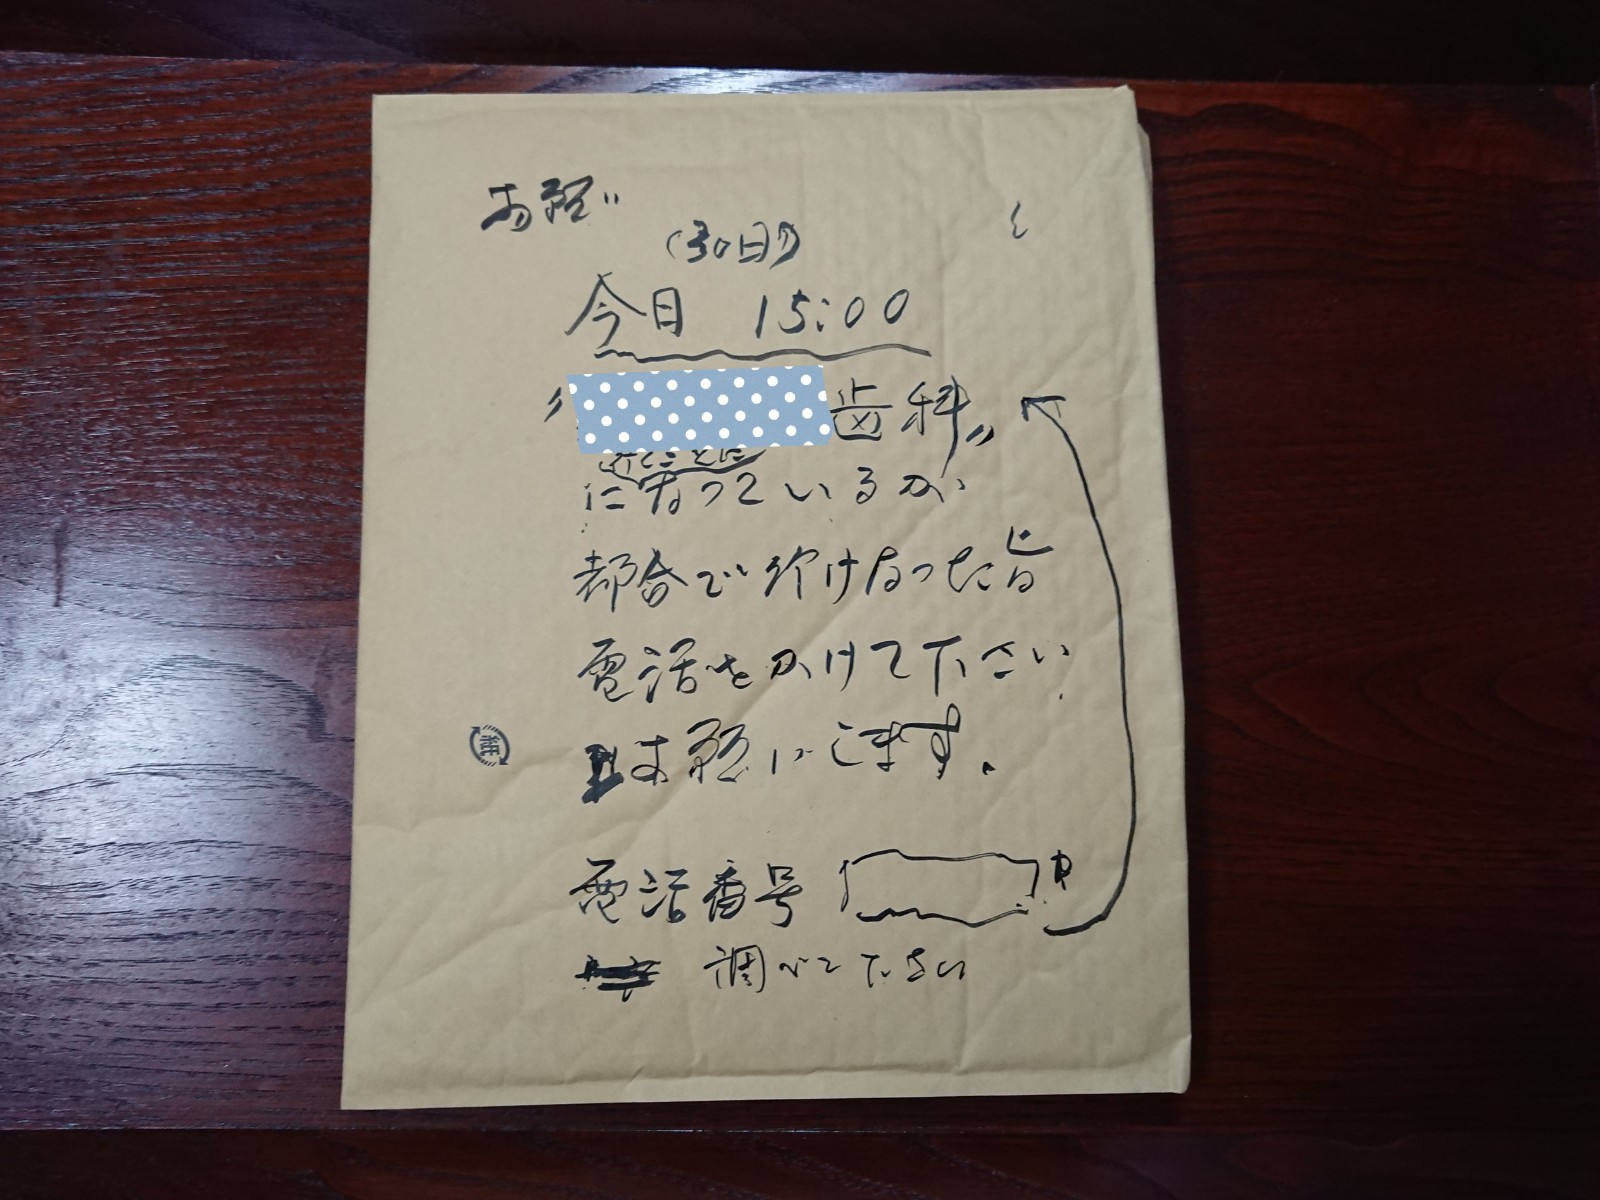 お願い
(30日)
今日 15:00
歯科〃
行くことに
になっているが
都合で行けなった旨
電話をかけて下さい
お願いします。
電話番号
調べて下さい
紙